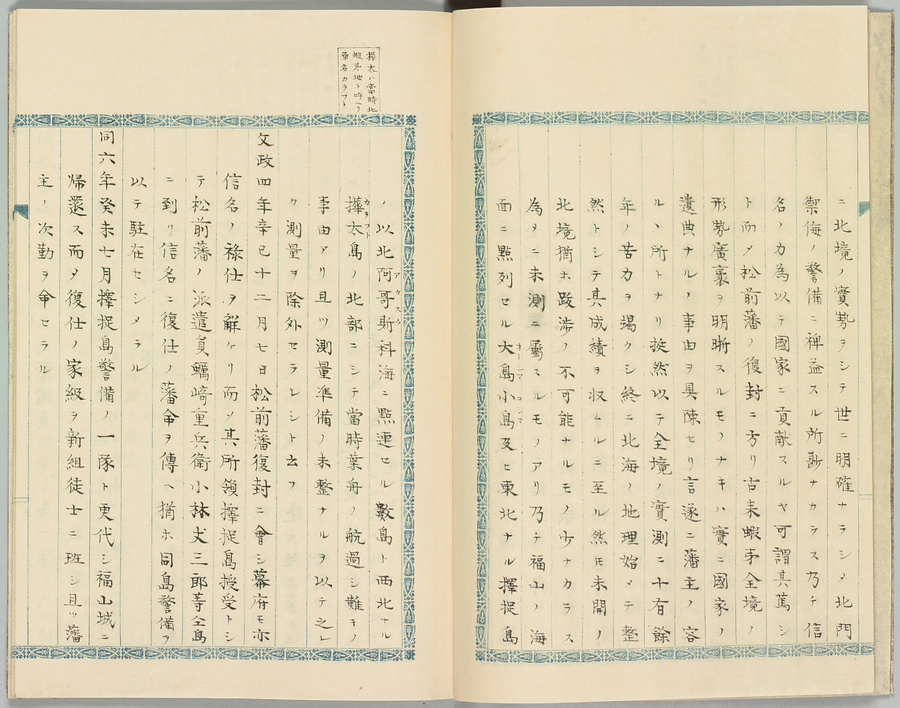 ニ北境ノ實勢ヲシテ世ニ明確ナラシメ北門
禦侮ノ警備ニ裨益スル所尠ナカラス乃テ信
名ノ力為以テ國家ニ貢献スルヤ可謂其萬シ
ト而メ松前藩ノ復封ニ方リ古来蝦夷全境ノ
形勢廣袤ヲ明晰スルモノナキハ實ニ國家ノ
遺典ナルノ事由ヲ具陳セリ言遂ニ藩主ノ容
ルヽ所トナリ挺然以テ全境ノ實測ニ十有餘
年ノ苦力ヲ竭クシ終ニ北海ノ地理始メテ整
然トシテ其成績ヲ収ムルニ至ル然モ未開ノ
北境猶ホ跋渉ノ不可能ナルモノ少ナカラス
為メニ未測ニ屬スルモノアリ乃テ福山ノ海
面ニ點列セル大島小島及ヒ東北ナル擇捉島
樺太ハ當時北
蝦夷地ト呼ヘリ
カラフト
ノ以北阿哥斯科海ニ點連セル數島ト西北ナル
樺太島ノ北部ニシテ當時葉舟ノ航過シ難キノ
カラフト
事由アリ且ツ測量準備ノ未整ナルヲ以テ之レ
カ測量ヲ除外セラレシト云フ
文政四年辛巳十二月七日松前藩復封ニ會シ幕府モ亦
信名ノ禄仕ヲ解ケリ而メ其所領擇捉島授受トシ
テ松前藩ノ派遣員蠣崎重兵衛小林丈三郎等仝島
ニ到リ信名ニ復仕ノ藩命ヲ傳ヘ猶ホ同島警備ヲ
以テ駐在セシメラル
同六年癸未七月擇捉島警備ノ一隊ト更代シ福山城ニ
帰還ス而メ復仕ノ家級ヲ新組徒士ニ班シ且ツ藩
主ノ次勤ヲ命セラル